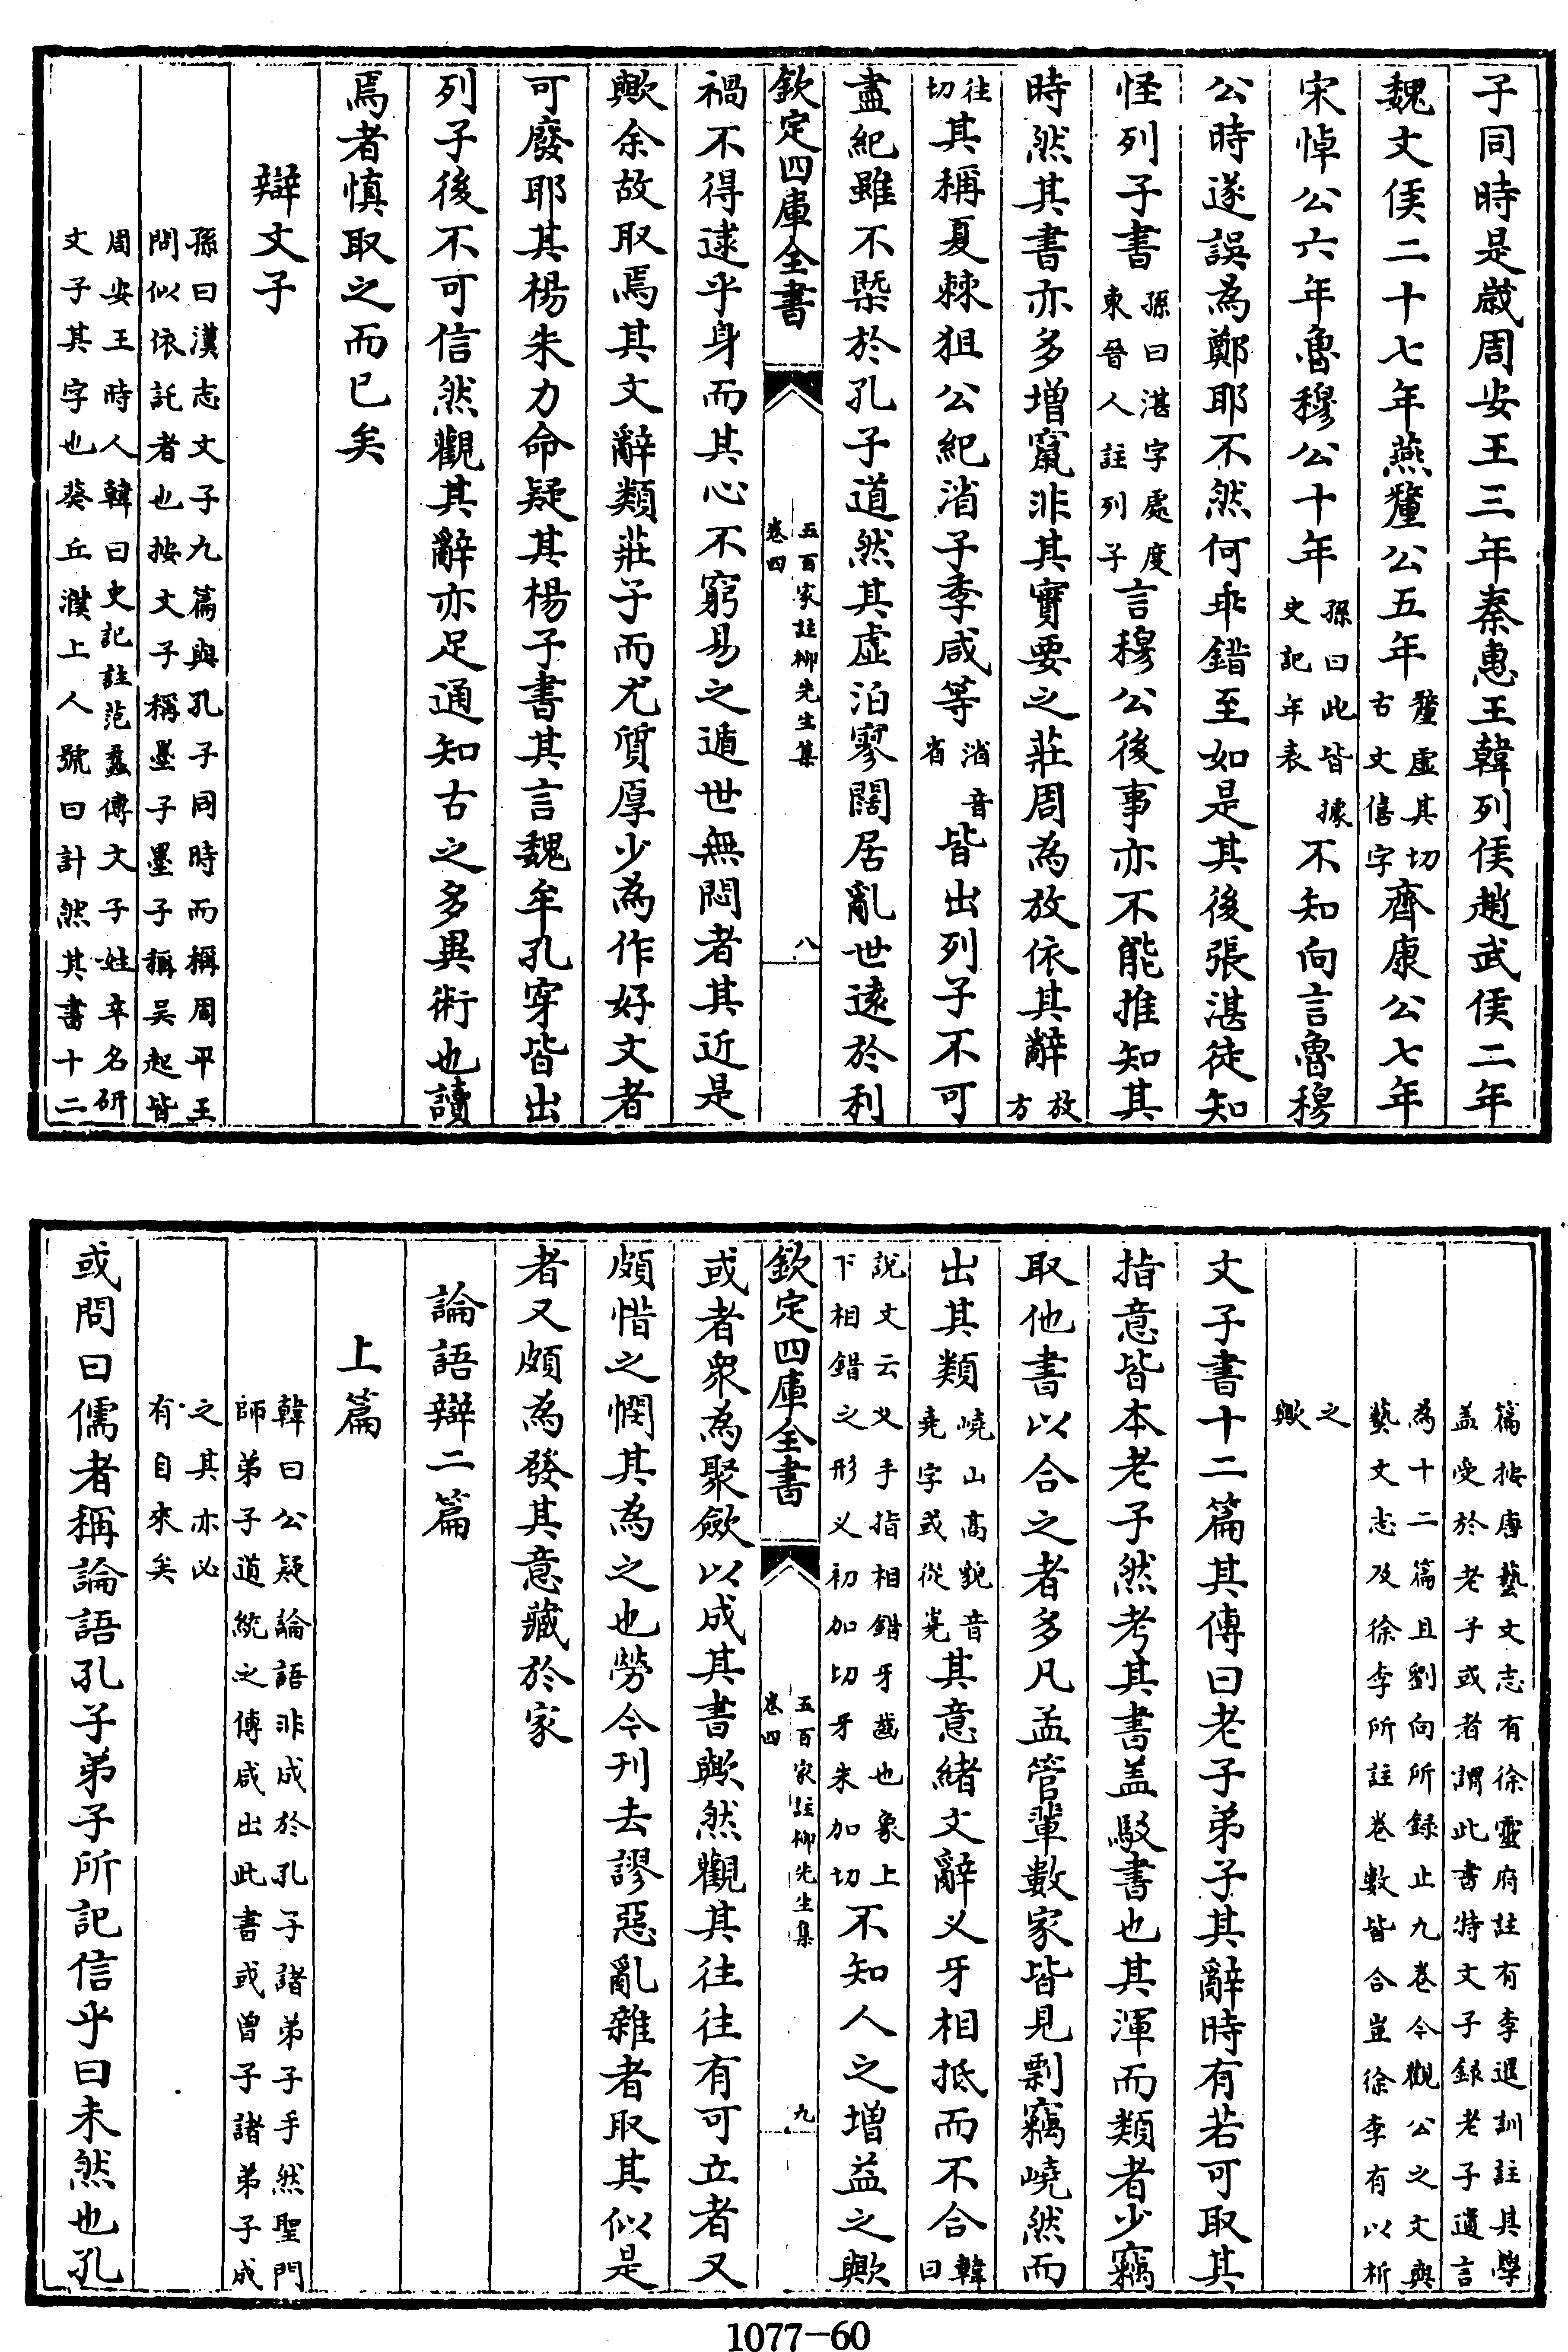 子同時是歲周安王三年秦惠王韓列侯趙武侯二年
魏文侯二十七年燕釐公五年釐虛其切古文僖字齊康公七年
宋悼公六年魯穆公十年孫曰此皆據史記年表不知向言魯穆
公時遂誤為鄭耶不然何乖錯至如是其後張湛徒知
怪列子書孫曰湛字處度東晉人註列子言穆公後事亦不能推知其
時然其書亦多增竄非其實要之莊周為放依其辭放方
往切其稱夏棘狙公紀渻子季咸等渻音省皆出列子不可
盡紀雖不槩於孔子道然其虛泊寥闊居亂世遠於利
欽定四庫全書 五百家註柳先生集卷四 八
禍不得逮乎身而其心不窮易之遁世無悶者其近是
歟余故取焉其文辭類莊子而尤質厚少為作好文者
可廢耶其楊朱力命疑其楊子書其言魏牟孔穿皆出
列子後不可信然觀其辭亦足通知古之多異術也讀
焉者慎取之而已矣
辯文子
孫曰漢志文子九篇與孔子同時而稱周平王
問似依託者也按文子稱墨子墨子稱吳起皆
周安王時人韓曰史記註范蠡傳文子姓辛名研
文子其字也葵丘濮上人號曰計然其書十二
篇按唐藝文志有徐靈府註有李暹訓註其學
盖受於老子或者謂此書特文子録老子遺言
為十二篇且劉向所録止九卷今觀公之文與
藝文志及徐李所註卷數皆合豈徐李有以析
之歟
文子書十二篇其傳曰老子弟子其辭時有若可取其
指意皆本老子然考其書盖駁書也其渾而類者少竊
取他書以合之者多凡孟管輩數家皆見剽竊嶢然而
出其類嶢山高貌音堯字或從嶤其意緒文辭义牙相抵而不合韓曰
說文云义手指相錯牙齒也象上下相錯之形义初加切牙朱加切不知人之増益之歟
欽定四庫全書 五百家註柳先生集卷四 九
或者衆為聚歛以成其書歟然觀其往往有可立者又
頗惜之憫其為之也勞今刋去謬惡亂雜者取其似是
者又頗為發其意藏於家
論語辯二篇
上篇
韓曰公疑論語非成於孔子諸弟子手然聖門
師弟子道統之傳咸出此書或曾子諸弟子成
之其亦必
有自來矣
或問曰儒者稱論語孔子弟子所記信乎曰未然也孔
1077-60